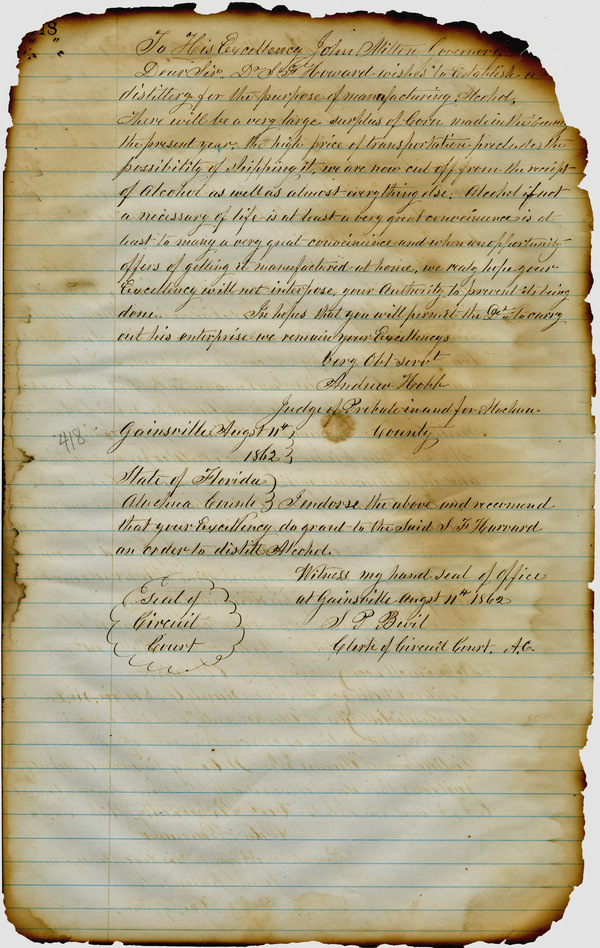 18
To His Excellency John Milton Governor of
Dear Sir, Dr S F Howard wishes to Establish a
distillery for the purpose of manufacturing Alcohol.
There will be a very large surplus of Corn made in this County
the present year, the high price of transportation precludes the
possibility of shipping it, we are now cut off from the receipt
of Alcohol as well as almost everything else. Alcohol if not
a necessary of life is at least a very great convenience is at
least to many a very great convenience and when an opportunity
offers of getting it manufactured at home, we realy hope your
Excellency will not interpose, your Authority to prevent its being
done. In hopes that you will permit the to carry
out his enterprise we remain your Excellencys
Very Obt servt
Andrew Hobb
Judge of Probate in and for Alachua
Gainsville Augst 11th County
1862
418
State of Florida
Alachua County I endorse the above and recomend
that your Excellency do grant to the Said S F Harvard
an order to distill Alcohol.
Witness my hand seal of Office
at Gainsville Augst 11th 1862
Seal of
Circuit
Court
S P Bevil
Clerk of Circuit Court. A.C.